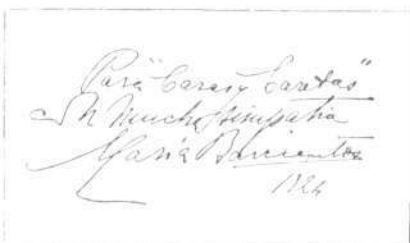 Para "Caras y Caretas"
con mucha simpatía
María Barrientos
1924